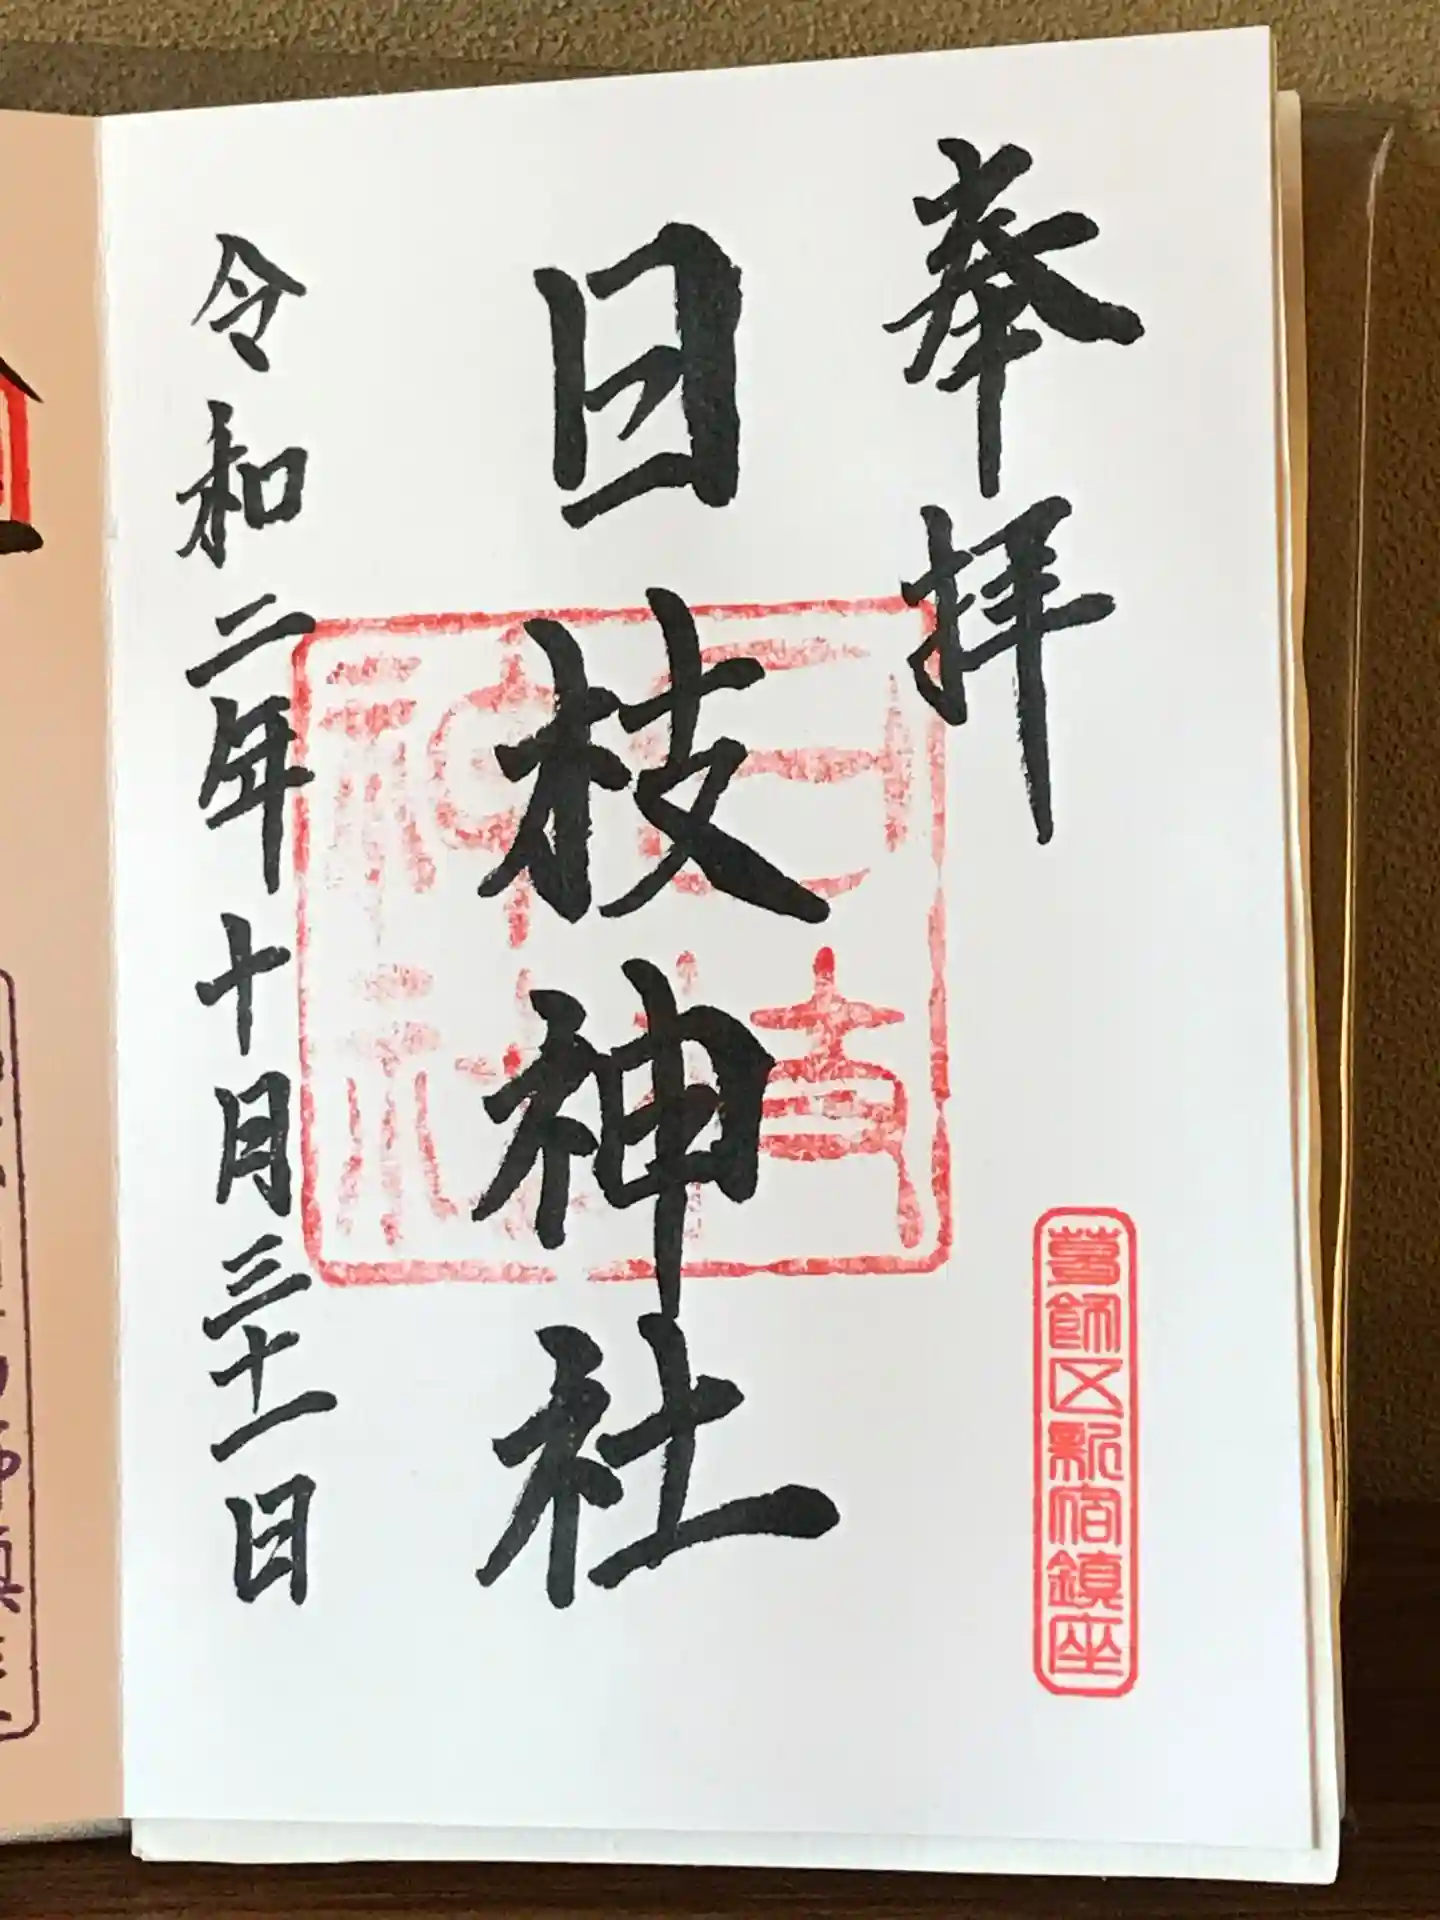 奉拝
葛飾区新宿鎮座
日枝神社
日枝神社
令和二年十月三十一日